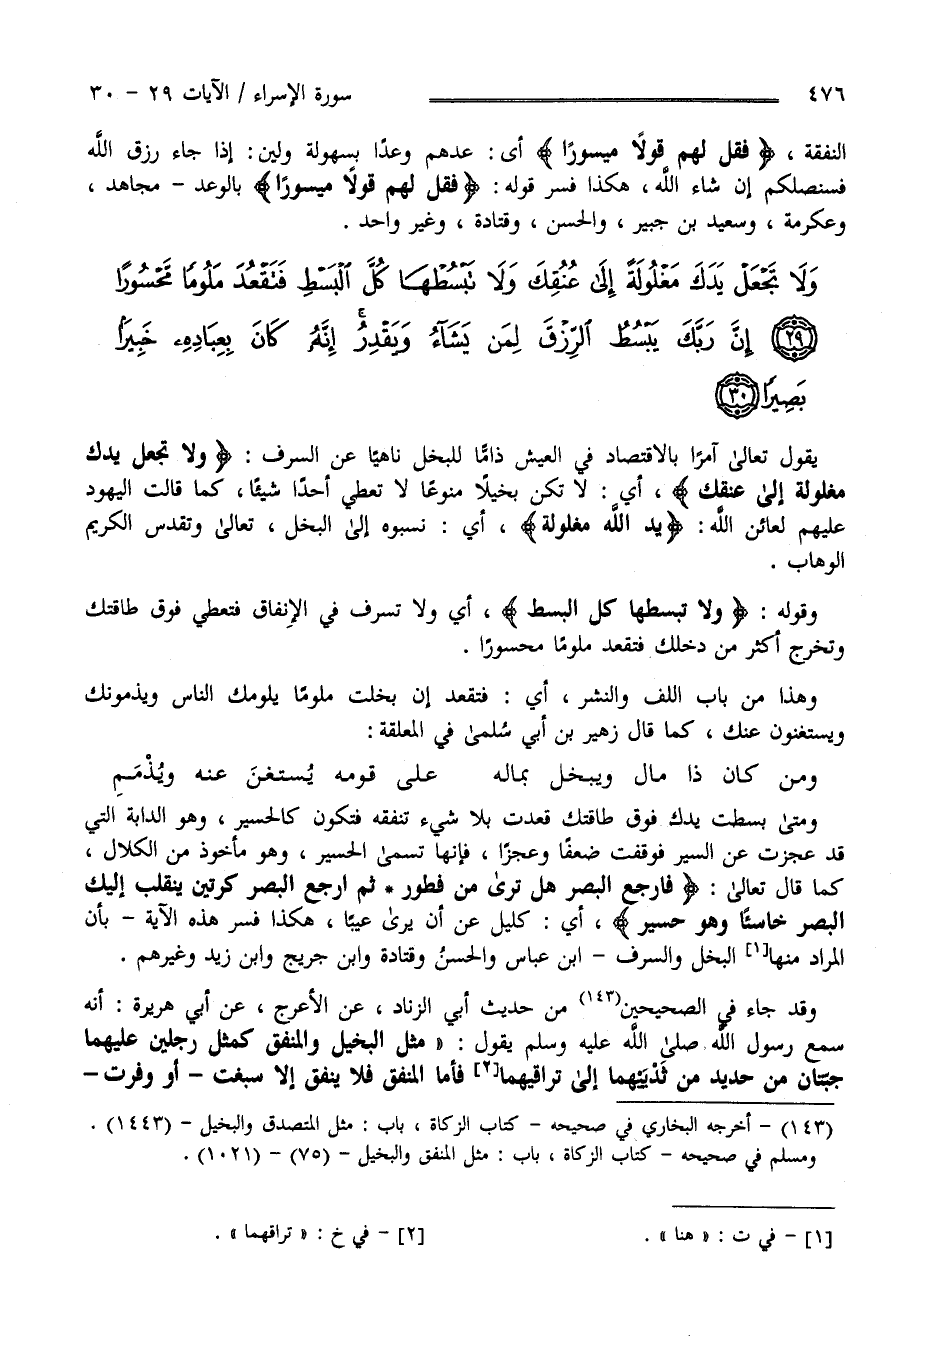 ٤٧٦ سورة الإسراء / الآيات ٢٩ – ٣٠
النفقة ، ﴿ فقل لهم قولًا ميسورًا ﴾ أى : عدهم وعدًا بسهولة ولين : إذا جاء رزق اللَّه
فسنصلكم إن شاء اللَّه ، هكذا فسر قوله : ﴿ فقل لهم قولًا ميسورًا﴾ بالوعد – مجاهد ،
وعكرمة ، وسعيد بن جبير ، والحسن ، وقتادة ، وغير واحد .
وَلَا تَجْعَلْ يَدَكَ مَغْلُولَةً إِلَىٰ عُنُقِكَ وَلَا تَبْسُطْهَا كُلَّ ٱلْبَسْطِ فَتَقْعُدَ مَلُومًا مَّحْسُورًا
﴿٢٩﴾ إِنَّ رَبَّكَ يَبْسُطُ ٱلرِّزْقَ لِمَن يَشَآءُ وَيَقْدِرُ ۚ إِنَّهُۥ كَانَ بِعِبَادِهِۦ خَبِيرًۢا
بَصِيرًا ﴿٣٠﴾
يقول تعالىٰ آمرًا بالاقتصاد في العيش ذامًّا للبخل ناهيًا عن السرف : ﴿ ولا تجعل يدك
مغلولة إلىٰ عنقك ﴾ ، أي : لا تكن بخيلًا منوعًا لا تعطي أحدًا شيئًا ، كما قالت اليهود
عليهم لعائن اللَّه : ﴿يد اللَّه مغلولة﴾ ، أي : نسبوه إلىٰ البخل ، تعالىٰ وتقدس الكريم
الوهاب .
وقوله : ﴿ ولا تبسطها كل البسط ﴾ ، أي ولا تسرف في الإنفاق فتعطي فوق طاقتك
وتخرج أكثر من دخلك فتقعد ملومًا محسورًا .
وهذا من باب اللف والنشر ، أي : فتقعد إن بخلت ملومًا يلومك الناس ويذمونك
ويستغنون عنك ، كما قال زهير بن أبي سُلمىٰ في المعلقة :
ومن كان ذا مال ويبخل بماله على قومه يُستغنَ عنه ويُذْمَمِ
ومتىٰ بسطت يدك فوق طاقتك قعدت بلا شيء تنفقه فتكون كالحسير ، وهو الدابة التي
قد عجزت عن السير فوقفت ضعفًا وعجزًا ، فإنها تسمىٰ الحسير ، وهو مأخوذ من الكلال ،
كما قال تعالىٰ : ﴿ فارجع البصر هل ترىٰ من فطور * ثم ارجع البصر كرتين ينقلب إليك
البصر خاسئًا وهو حسير ﴾ ، أي : كليل عن أن يرىٰ عيبًا ، هكذا فسر هذه الآية – بأن
المراد منها[١] البخل والسرف – ابن عباس والحسنُ وقتادة وابن جريج وابن زيد وغيرهم .
وقد جاء في الصحيحين(١٤٣) من حديث أبي الزناد ، عن الأعرج ، عن أبي هريرة : أنه
سمع رسول اللَّه صلىٰ اللَّه عليه وسلم يقول : « مثل البخيل والمنفق كمثل رجلين عليهما
جبّتان من حديد من ثُدَيّهما إلىٰ تراقيهما[٢] فأما المنفق فلا ينفق إلا سبغت – أو وفرت –
(١٤٣) – أخرجه البخاري في صحيحه – كتاب الزكاة ، باب : مثل المتصدق والبخيل – (١٤٤٣) .
ومسلم في صحيحه – كتاب الزكاة ، باب : مثل المنفق والبخيل – (٧٥) – (١٠٢١) .
[١] – في ت : « هنا » . [٢] – في خ : « تراقهما » .